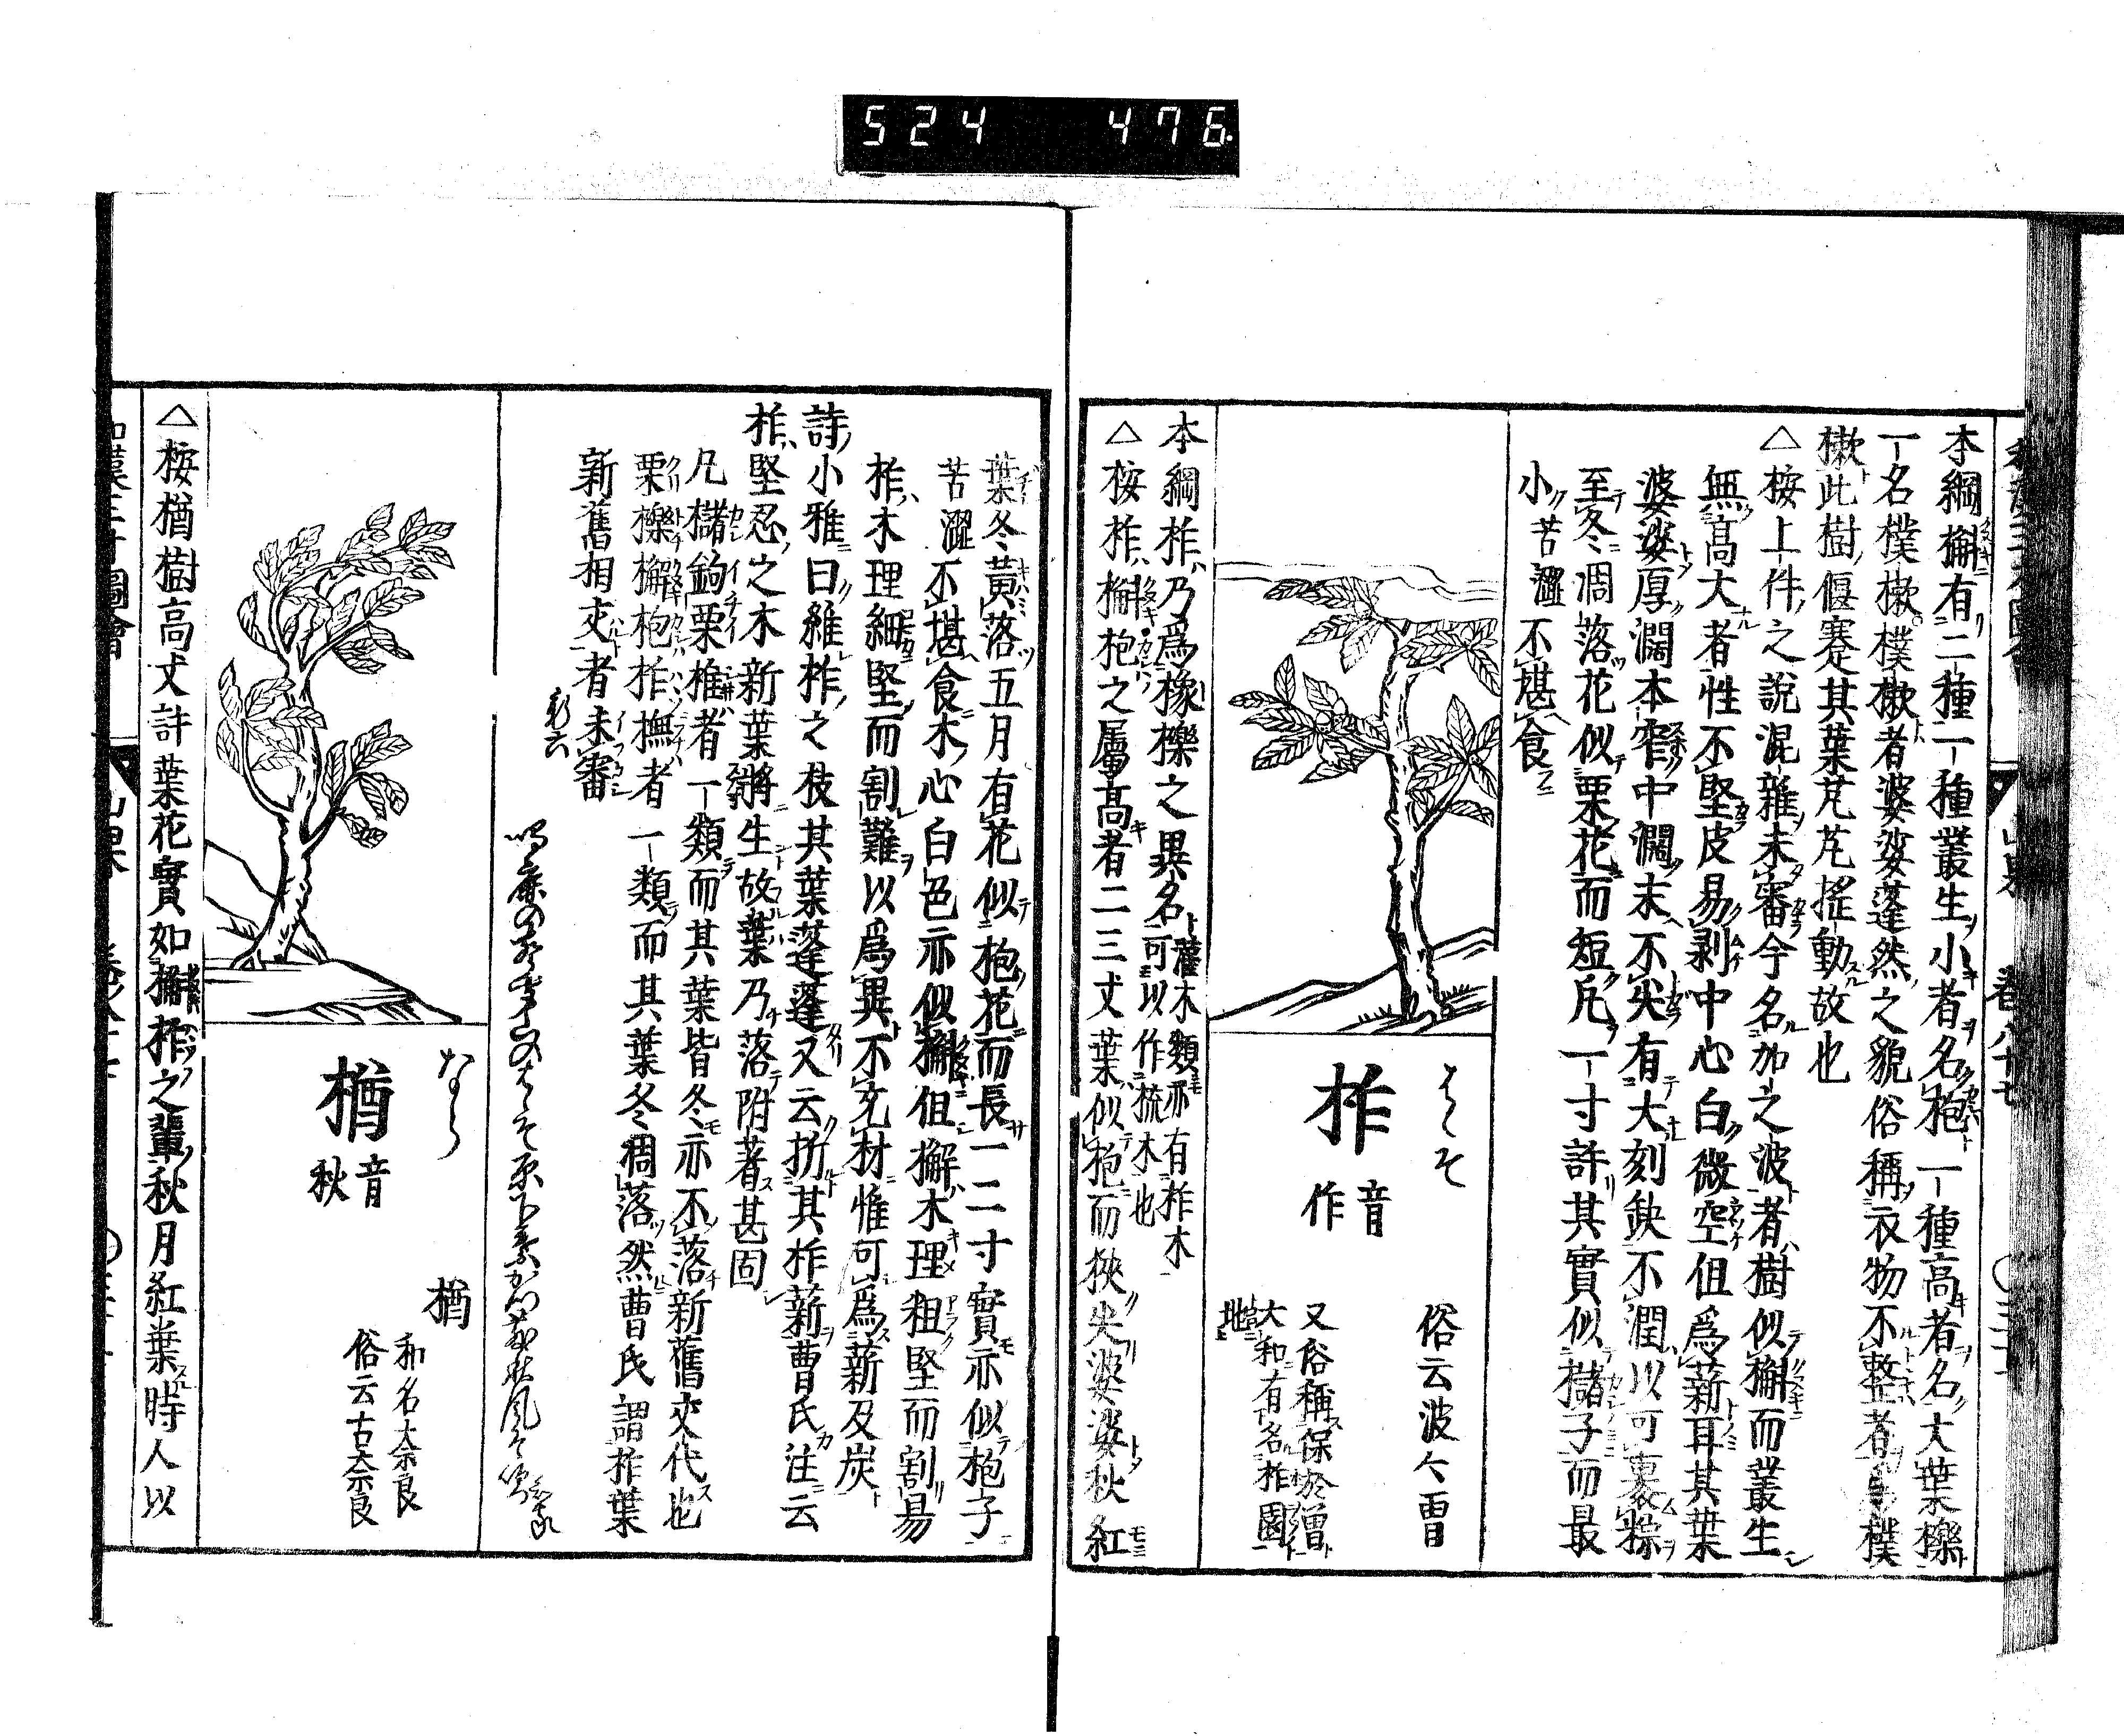 524 476
本綱槲有二種一種叢生小者名枹一種高者名大葉櫟
一名樸樕樸樕者婆娑蓬然之貌俗稱衣物不整者爲樸
樕此樹偃蹇其葉芃芃搖動故也
△桉上件之說混雜未審今名加之波者樹似槲而叢生
無高大者性不堅皮易剥中心白微空但爲薪耳其葉
婆娑厚濶本窄中濶末不尖有大刻缺不潤以可裹粽
至冬凋落花似栗花而短凡一寸許其實似櫧子而最
小苦澀不堪食
はゝそ
柞
音
作
俗云波々曽
又俗稱保於曽
大和有名柞園
地
本綱柞乃爲橡櫟之異名
灌木類亦有柞木
可以作梳木也
△桉柞槲枹之屬高者二三丈葉似枹而狹尖婆娑秋紅
葉冬黃落五月有花似枹花而長一二寸實亦似枹子
苦澀不堪食木心白色亦似槲但槲木理粗堅而割易
柞木理細堅而割難以爲異不充材惟可爲薪及炭
詩小雅曰維柞之枝其葉蓬蓬又云折其柞薪曹氏注云
柞堅忍之木新葉將生故葉乃落附著甚固
凡櫧鉤栗椎者一類而其葉皆冬亦不落新舊交代也
栗櫟槲枹柞橅者一類而其葉冬凋落然曹氏謂柞葉
新舊相交者未審
新六
なら
楢
音
秋
楢
和名奈良
俗云古奈良
△桉楢樹高丈許葉花實如槲柞之輩秋月紅葉時人以